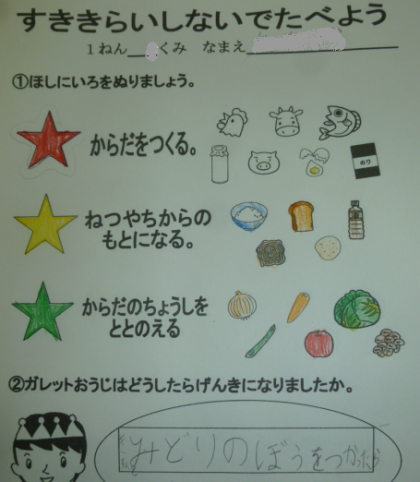 すききらいしないでたべよう
1ねん くみ なまえ
①ほしにいろをぬりましょう。
からだをつくる。
のり
ねつやちからの
もとになる。
からだのちょうしを
ととのえる
②ガレットおうじはどうしたらげんきになりましたか。
みどりのぼうをつかったら